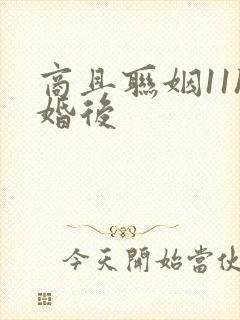 商且聯姻11
婚後
今天開始當伙